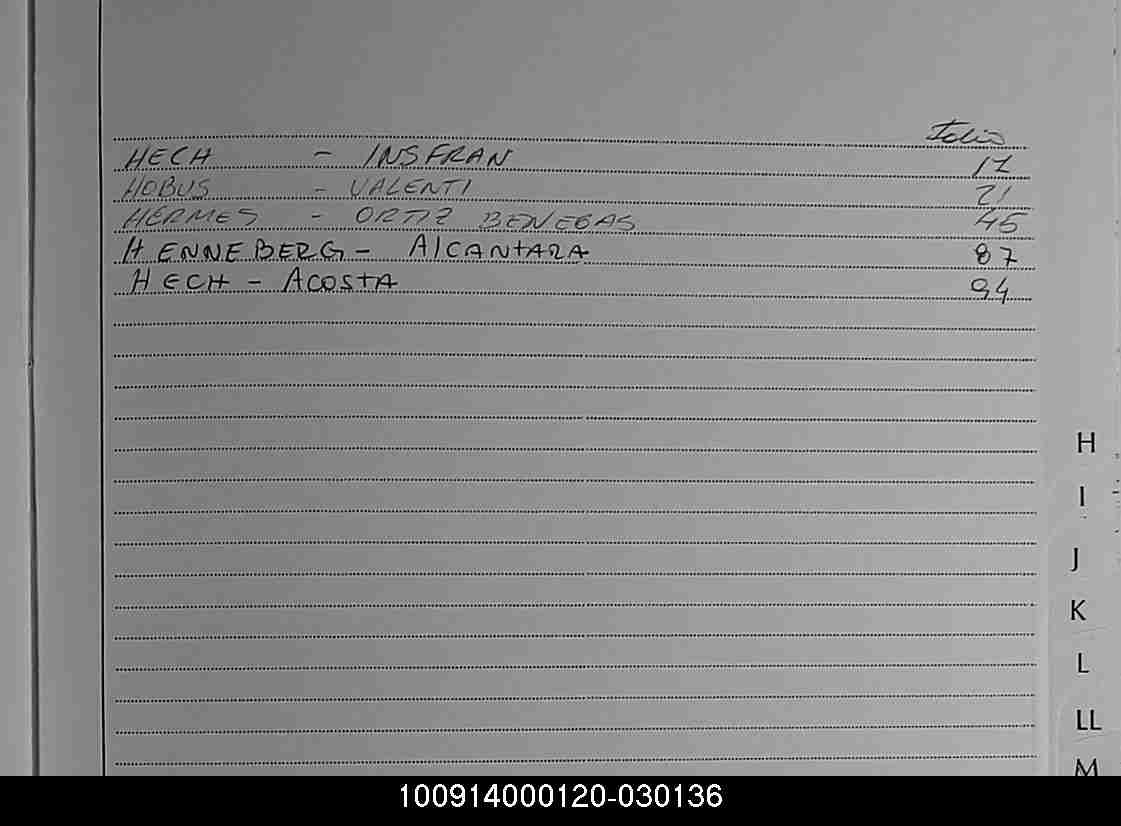 Folio
HECH - INSFRAN 17
HOBUS - VALENTI 21
HERMES - ORTIZ BENEGAS 45
HENNEBERG - AlCANtARA 87
HECH - ACOStA 94
H
I
J
K
L
LL
M
100914000120-030136